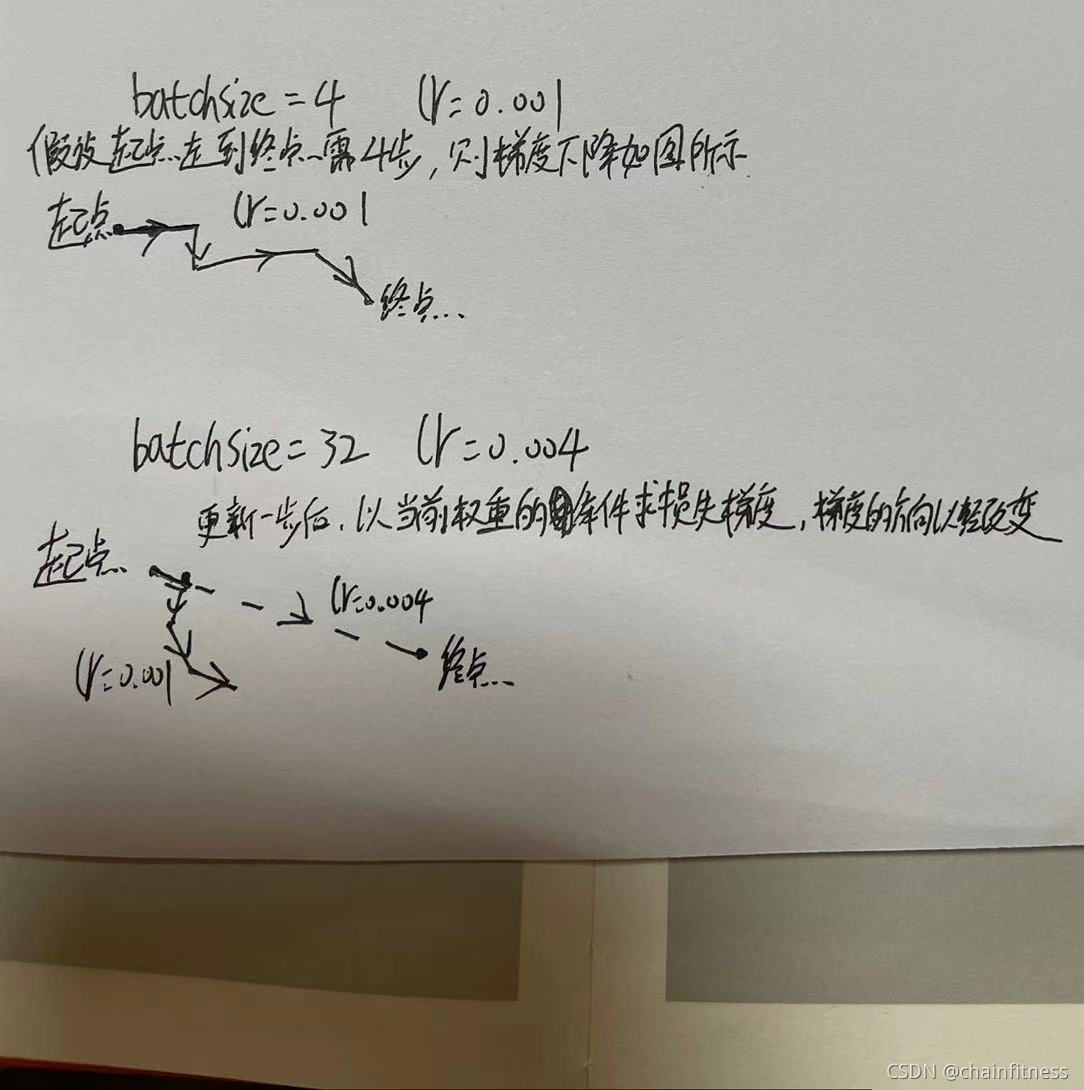 batchsize = 4    lr = 0.001
假设起点走到终点需4步，则梯度下降如图所示
起点    lr=0.001
终点...
batchsize = 32    lr = 0.004
更新一步后，以当前权重的条件求损失梯度，梯度的方向以经改变
起点
lr=0.004
终点...
lr=0.001
CSDN @chainfitness